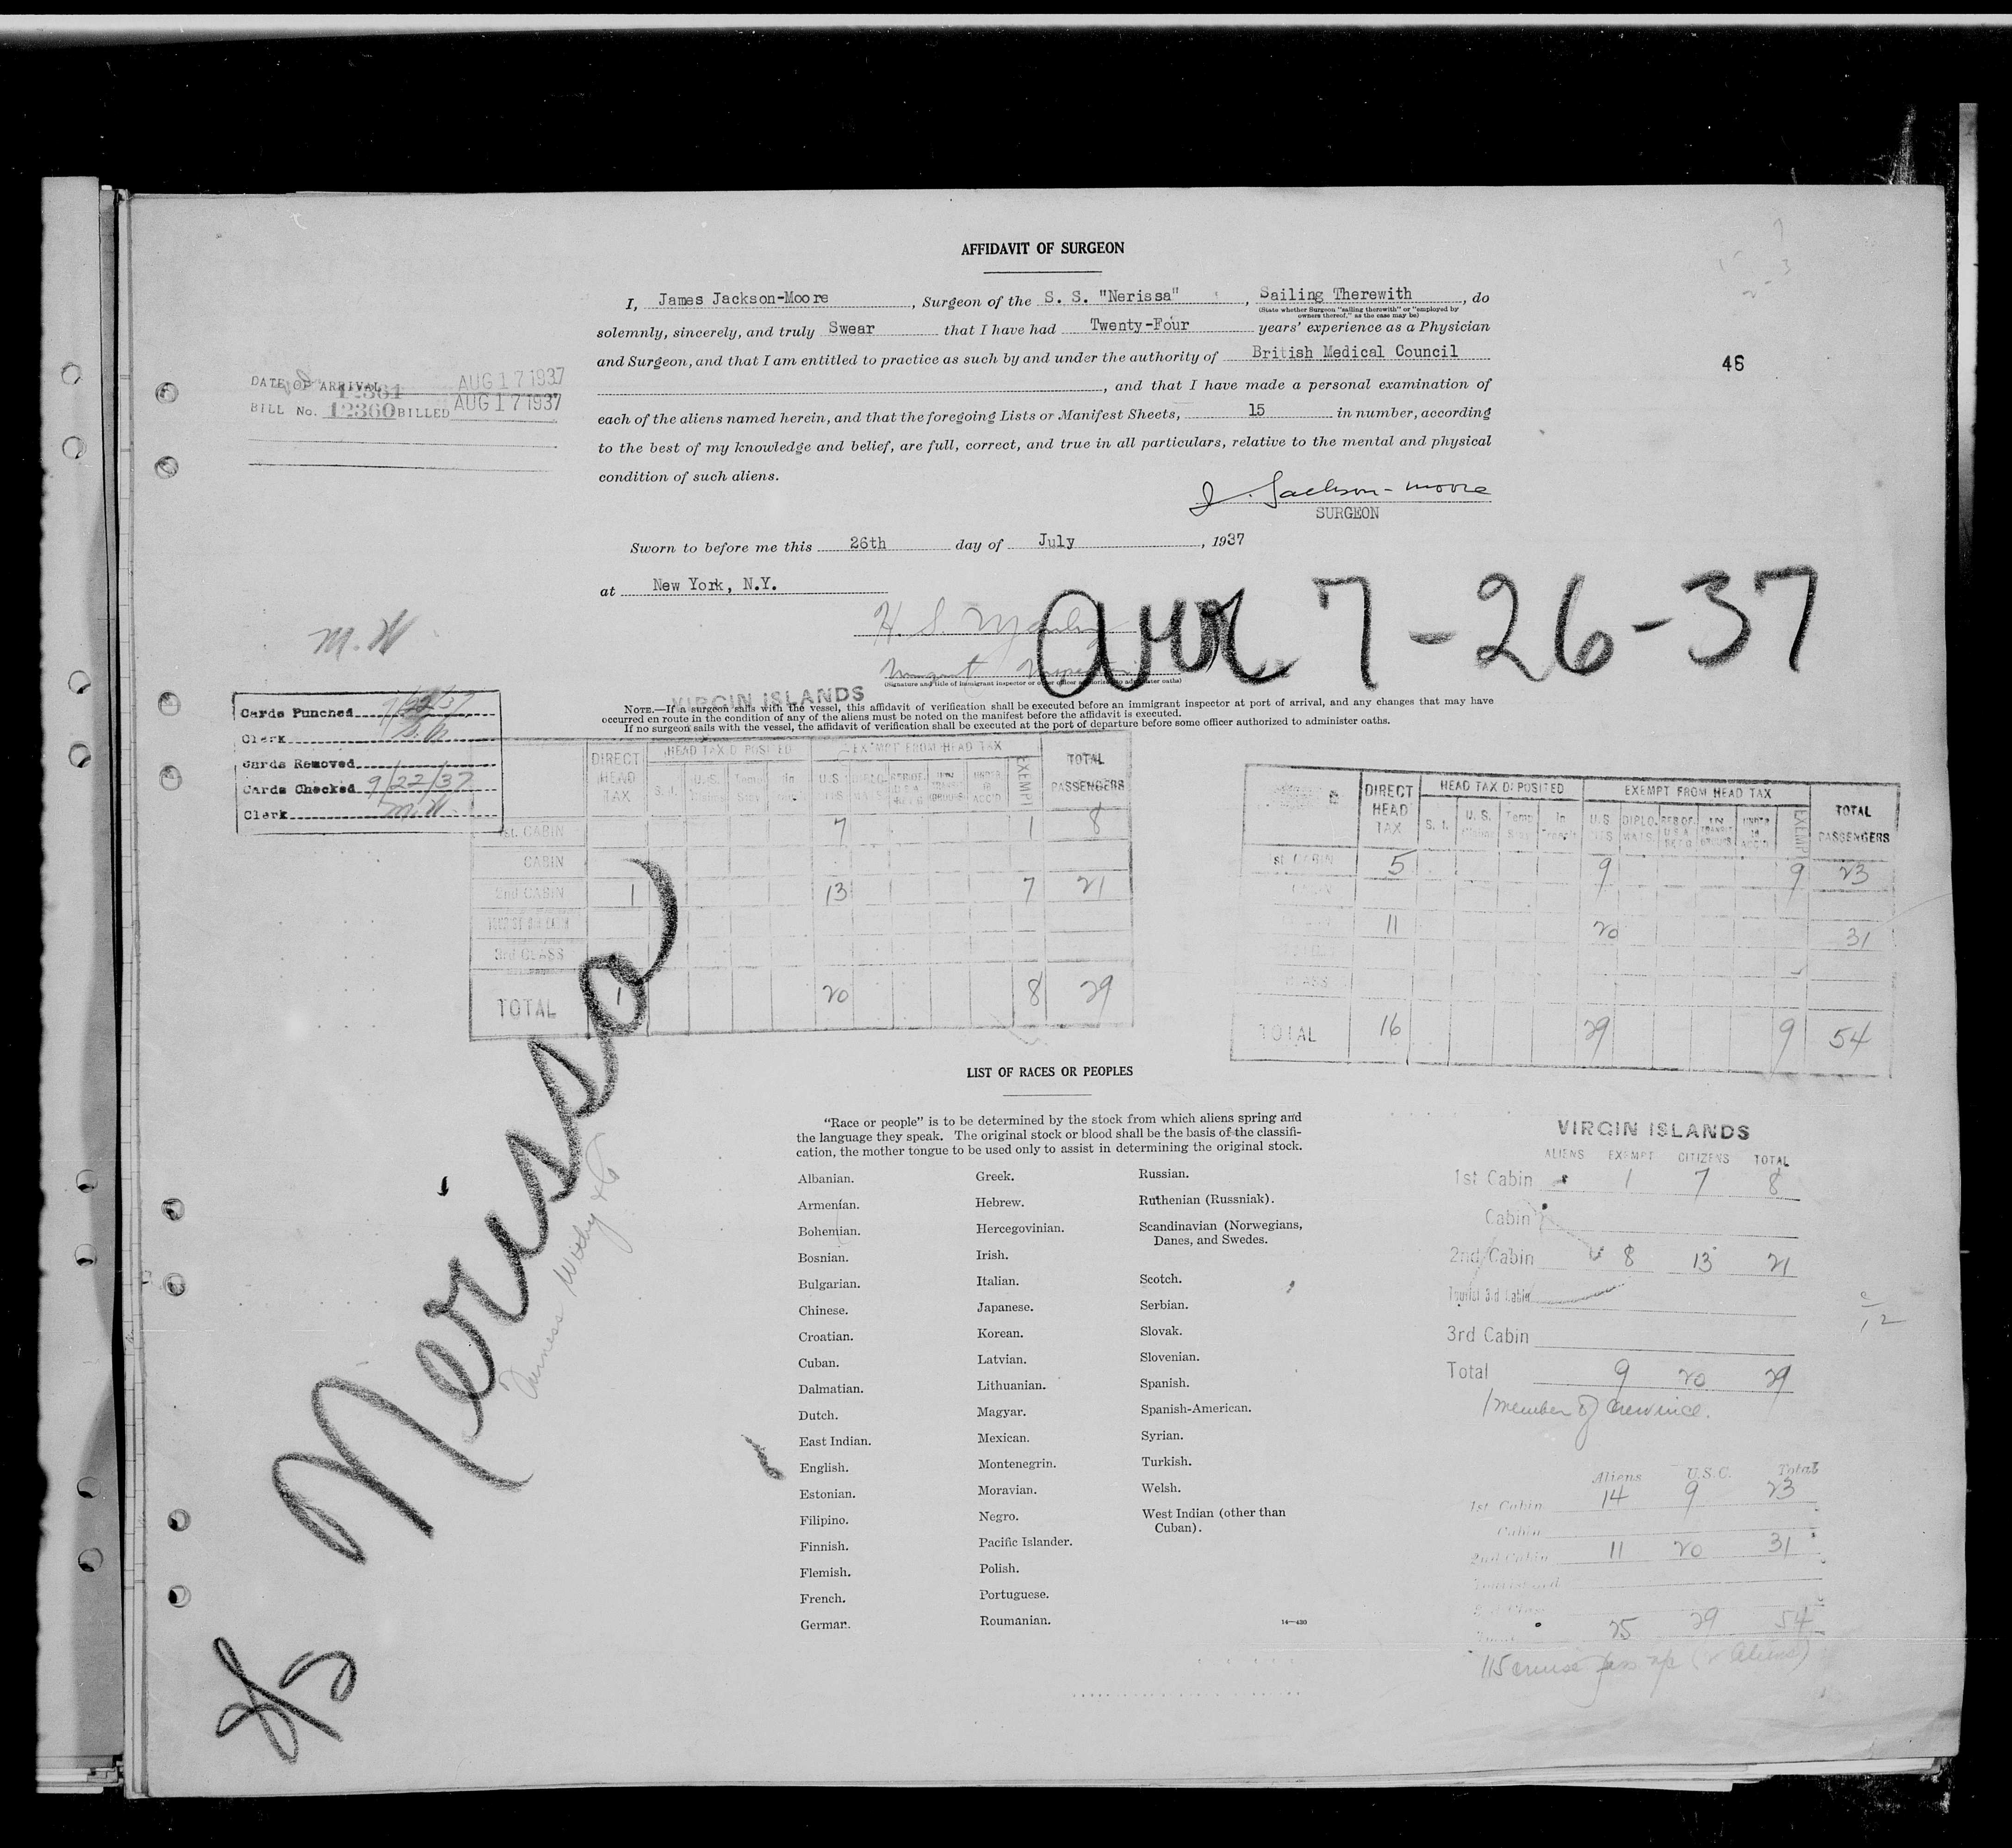 AFFIDAVIT OF SURGEON
I, James Jackson-Moore, Surgeon of the S. S. "Nerissa", Sailing Therewith, do
(State whether Surgeon "sailing therewith" or "employed by
owners thereof," as the case may be)
solemnly, sincerely, and truly Swear that I have had Twenty-Four years' experience as a Physician
and Surgeon, and that I am entitled to practice as such by and under the authority of British Medical Council
46
, and that I have made a personal examination of
each of the aliens named herein, and that the foregoing Lists or Manifest Sheets, 15 in number, according
to the best of my knowledge and belief, are full, correct, and true in all particulars, relative to the mental and physical
condition of such aliens.
DATE OF ARRIVAL 12361 AUG 17 1937
BILL No. 12360 BILLED AUG 17 1937
J. Jackson-Moore
SURGEON
Sworn to before me this 26th day of July, 1937
at New York, N.Y.
H. S.
Arr 7-26-37
Immigrant Inspector
(Signature and title of immigrant inspector or other officer authorized to administer oaths)
VIRGIN ISLANDS
NOTE.—If a surgeon sails with the vessel, this affidavit of verification shall be executed before an immigrant inspector at port of arrival, and any changes that may have
occurred en route in the condition of any of the aliens must be noted on the manifest before the affidavit is executed.
If no surgeon sails with the vessel, the affidavit of verification shall be executed at the port of departure before some officer authorized to administer oaths.
M.W
Cards Punched
Clerk
Cards Removed
Cards Checked 9/22/37
Clerk M.W.
DIRECT HEAD TAX HEAD TAX DEPOSITED EXEMPT FROM HEAD TAX TOTAL PASSENGERS
1st. CABIN 7 1 8
CABIN
2nd CABIN 1 13 7 21
3rd CLASS
TOTAL 1 20 8 29
DIRECT HEAD TAX HEAD TAX DEPOSITED EXEMPT FROM HEAD TAX TOTAL PASSENGERS
1st CABIN 5 9 9 23
11 20 31
TOTAL 16 29 9 54
Nerissa
Furness Withy & Co
LIST OF RACES OR PEOPLES
"Race or people" is to be determined by the stock from which aliens spring and
the language they speak. The original stock or blood shall be the basis of the classifi-
cation, the mother tongue to be used only to assist in determining the original stock.
Albanian.
Armenian.
Bohemian.
Bosnian.
Bulgarian.
Chinese.
Croatian.
Cuban.
Dalmatian.
Dutch.
East Indian.
English.
Estonian.
Filipino.
Finnish.
Flemish.
French.
German.
Greek.
Hebrew.
Hercegovinian.
Irish.
Italian.
Japanese.
Korean.
Latvian.
Lithuanian.
Magyar.
Mexican.
Montenegrin.
Moravian.
Negro.
Pacific Islander.
Polish.
Portuguese.
Roumanian.
Russian.
Ruthenian (Russniak).
Scandinavian (Norwegians,
Danes, and Swedes.
Scotch.
Serbian.
Slovak.
Slovenian.
Spanish.
Spanish-American.
Syrian.
Turkish.
Welsh.
West Indian (other than
Cuban).
14—430
VIRGIN ISLANDS
ALIENS EXEMPT CITIZENS TOTAL
1st Cabin 1 7 8
Cabin
2nd Cabin 8 13 21
Tourist 3rd Cabin
3rd Cabin
Total 9 20 29
1 member of crew incl.
Aliens U.S.C. Total
1st Cabin 14 9 23
Cabin
2nd Cabin 11 20 31
25 29 54
115 cruise pass